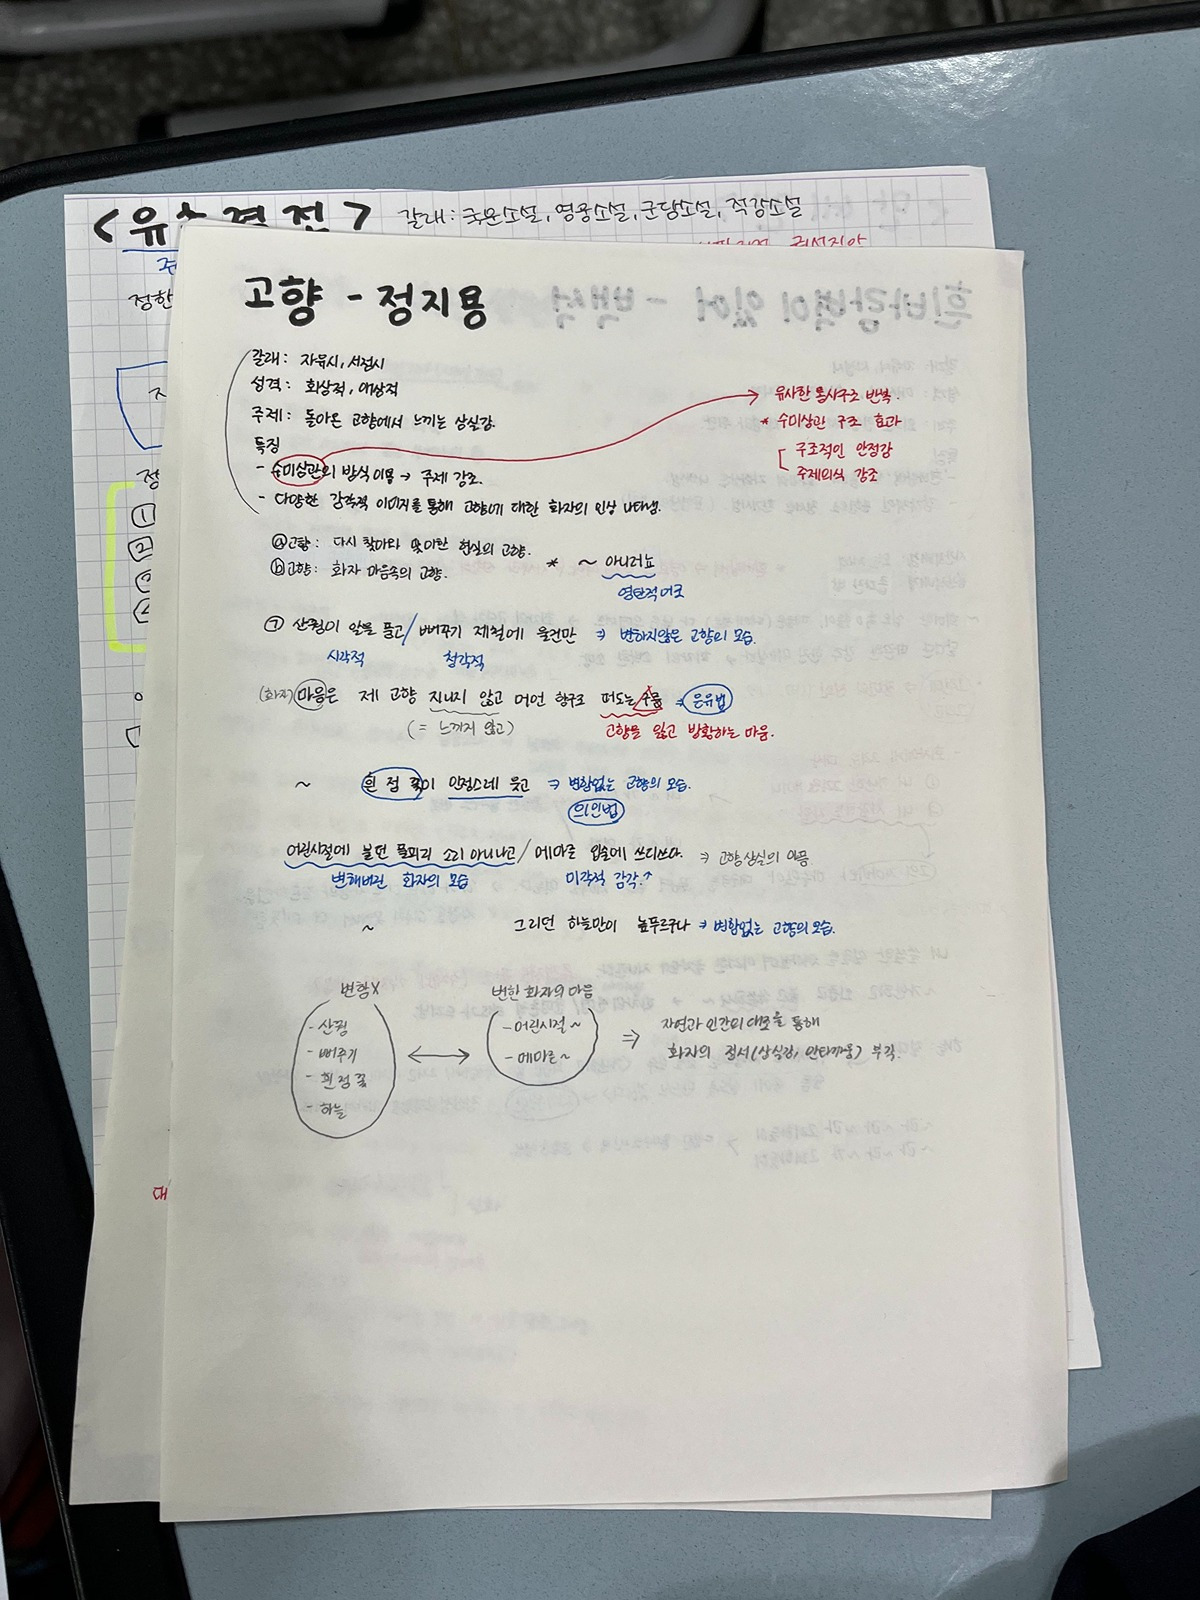 갈래: 국문소설, 영웅소설, 군담소설, 적강소설
고향 - 정지용
갈래: 자유시, 서정시
성격: 회상적, 애상적
주제: 돌아온 고향에서 느끼는 상실감.
특징
- 수미상관의 방식 이용 → 주제 강조.
- 다양한 감각적 이미지를 통해 고향에 대한 화자의 인상 나타냄.
유사한 통사구조 반복.
* 수미상관 구조 효과
구조적인 안정감
주제의식 강조
ⓐ고향: 다시 찾아와 맞이한 현실의 고향.
ⓑ고향: 화자 마음속의 고향.
* ~ 아니러뇨
영탄적 어조
㉠ 산꿩이 알을 품고/ 뻐꾸기 제철에 울건만 ⇒ 변하지않은 고향의 모습.
시각적 청각적
(화자) 마음은 제 고향 지니지 않고 머언 항구로 떠도는 구름 ⇒ 은유법
(= 느끼지 않고) 고향을 잃고 방황하는 마음.
~ 흰 점 꽃이 인정스레 웃고 ⇒ 변함없는 고향의 모습.
의인법
어린시절에 불던 풀피리 소리 아니나고/ 메마른 입술에 쓰디쓰다. ⇒ 고향상실의 아픔
변해버린 화자의 모습 미각적 감각.↑
~ 그리던 하늘만이 높푸르구나 ⇒ 변함없는 고향의 모습.
변함X
- 산꿩
- 뻐꾸기
- 흰 점 꽃
- 하늘
변한 화자의 마음
- 어린시절 ~
- 메마른 ~
⇒ 자연과 인간의 대조를 통해
화자의 정서(상실감, 안타까움) 부각.